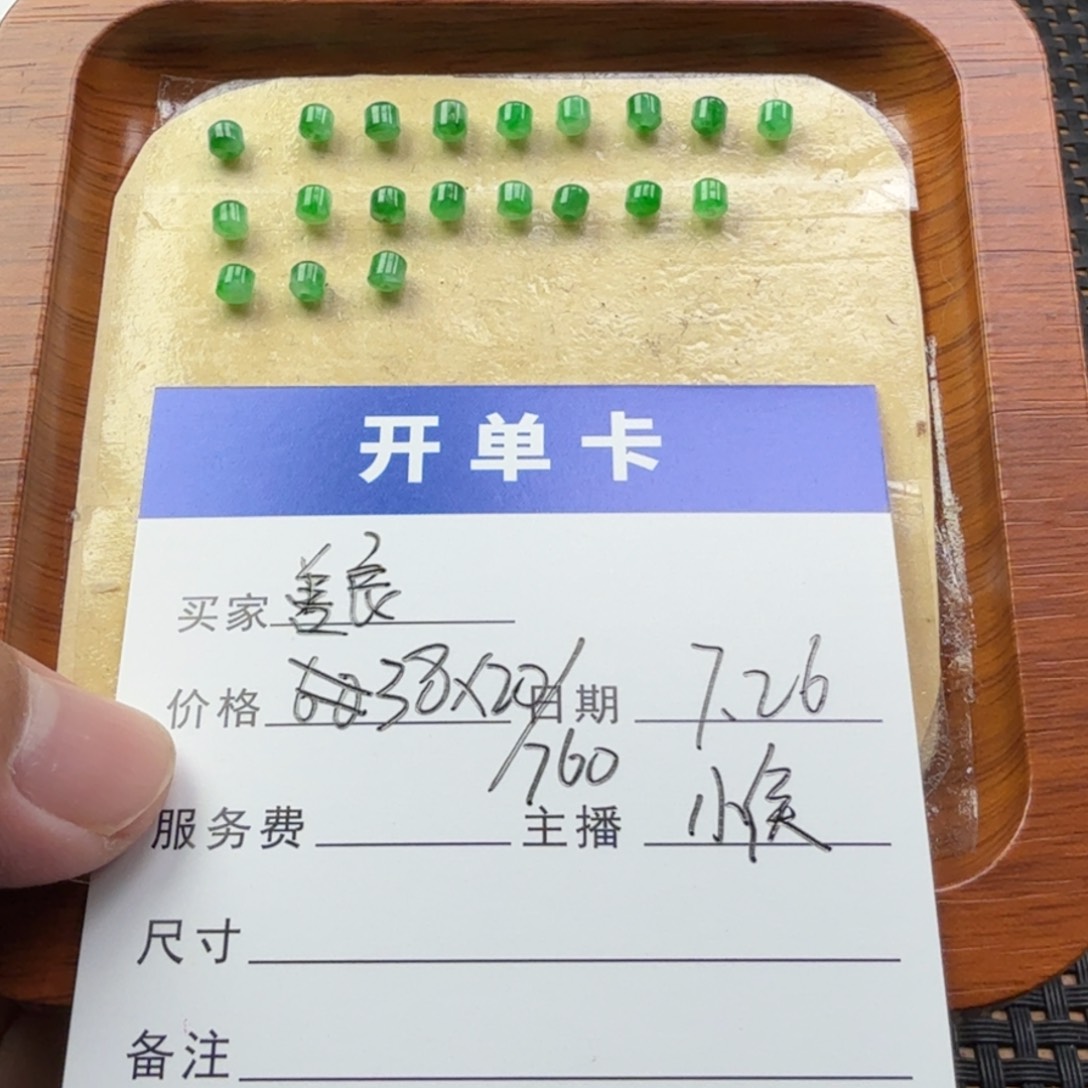 开单卡
买家 善良
价格 38×20/ 日期 7.26
760
服务费 主播 小侯
尺寸
备注